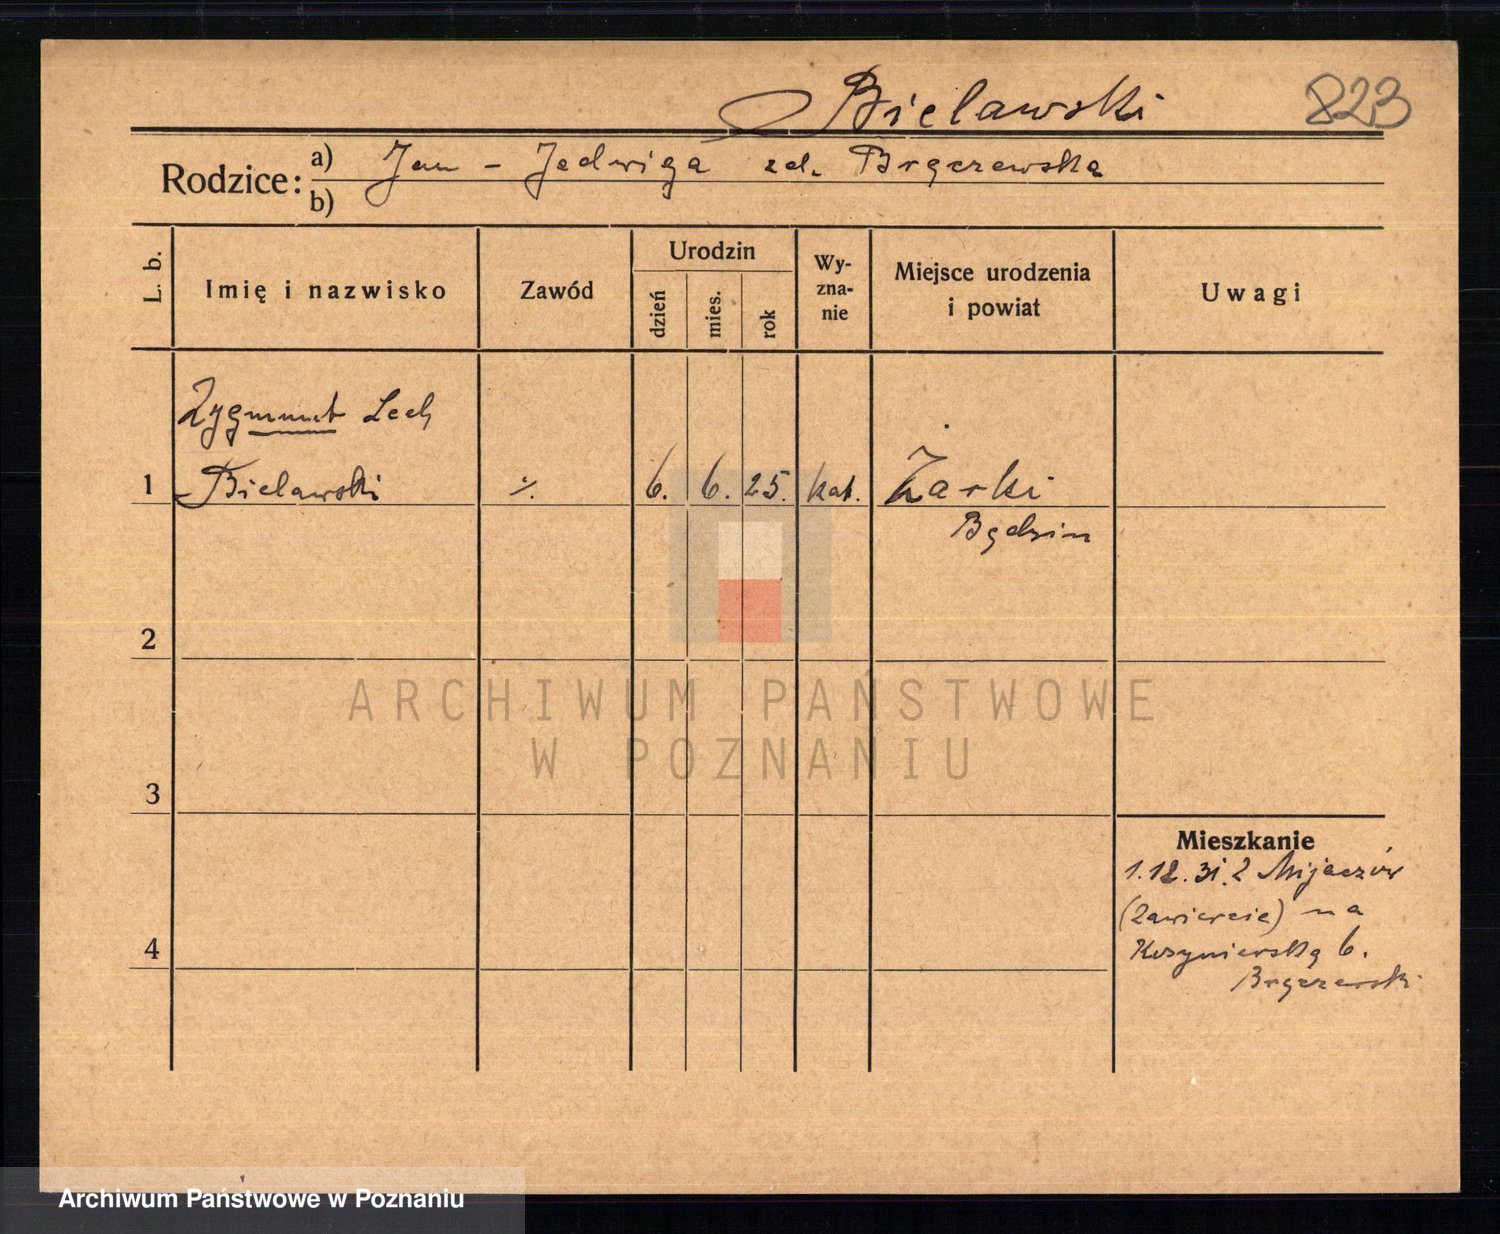 Bielawski 823
Rodzice: a) Jan - Jadwiga zd. Brączewska
b)
L. b. Imię i nazwisko Zawód Urodzin dzień mies. rok Wy-zna-nie Miejsce urodzenia i powiat Uwagi
Zygmunt Lech
1 Bielawski ٪. 6. 6. 25. kat. Żarki
Będzin
2
ARCHIWUM PAŃSTWOWE
W POZNANIU
3
Mieszkanie
1.12.31. z Mijaczów
(Zawiercie) na
4 Kosynierską 6.
Brączewski
Archiwum Państwowe w Poznaniu